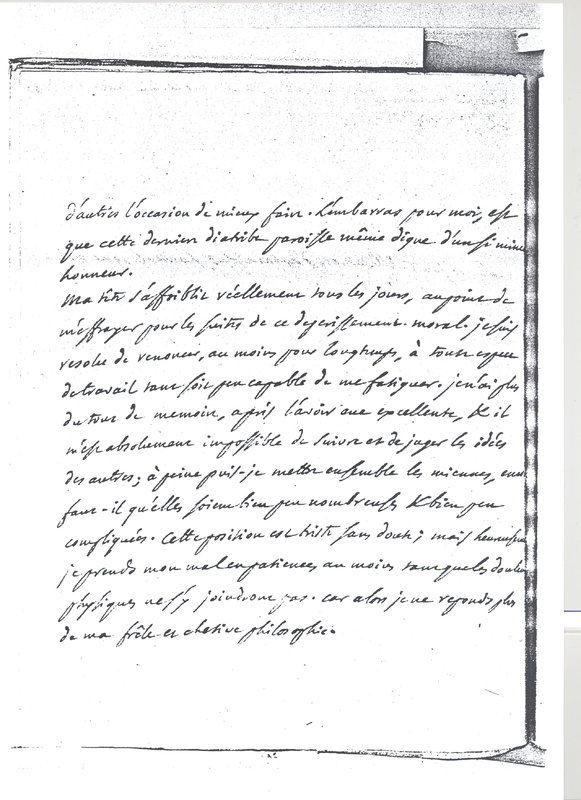 d'autres l'occasion de mieux faire. L'embarras pour moi, est
que cette derniere diatribe paroisse même digne d'un si mince
honneur.
Ma tête s'affoiblit réellement tous les jours, au point de
m'effrayer pour les suites de ce deperissement moral. je suis
resolu de renoncer, au moins pour longtemps, à toute espece
de travail tant soit peu capable de me fatiguer. je n'ai plus
du tout de memoire, après l'avoir eue excellente, & il
m'est absolument impossible de suivre et de juger les idées
des autres; à peine puis-je mettre ensemble les miennes, encor
faut-il qu'elles soient bien peu nombreuses & bien peu
compliquées. Cette position est triste sans doute; mais heureusement
je prends mon mal en patience au moins tant que les douleurs
physiques ne s'y joindront pas. car alors je ne reponds plus
de ma frêle et chetive philosophie.